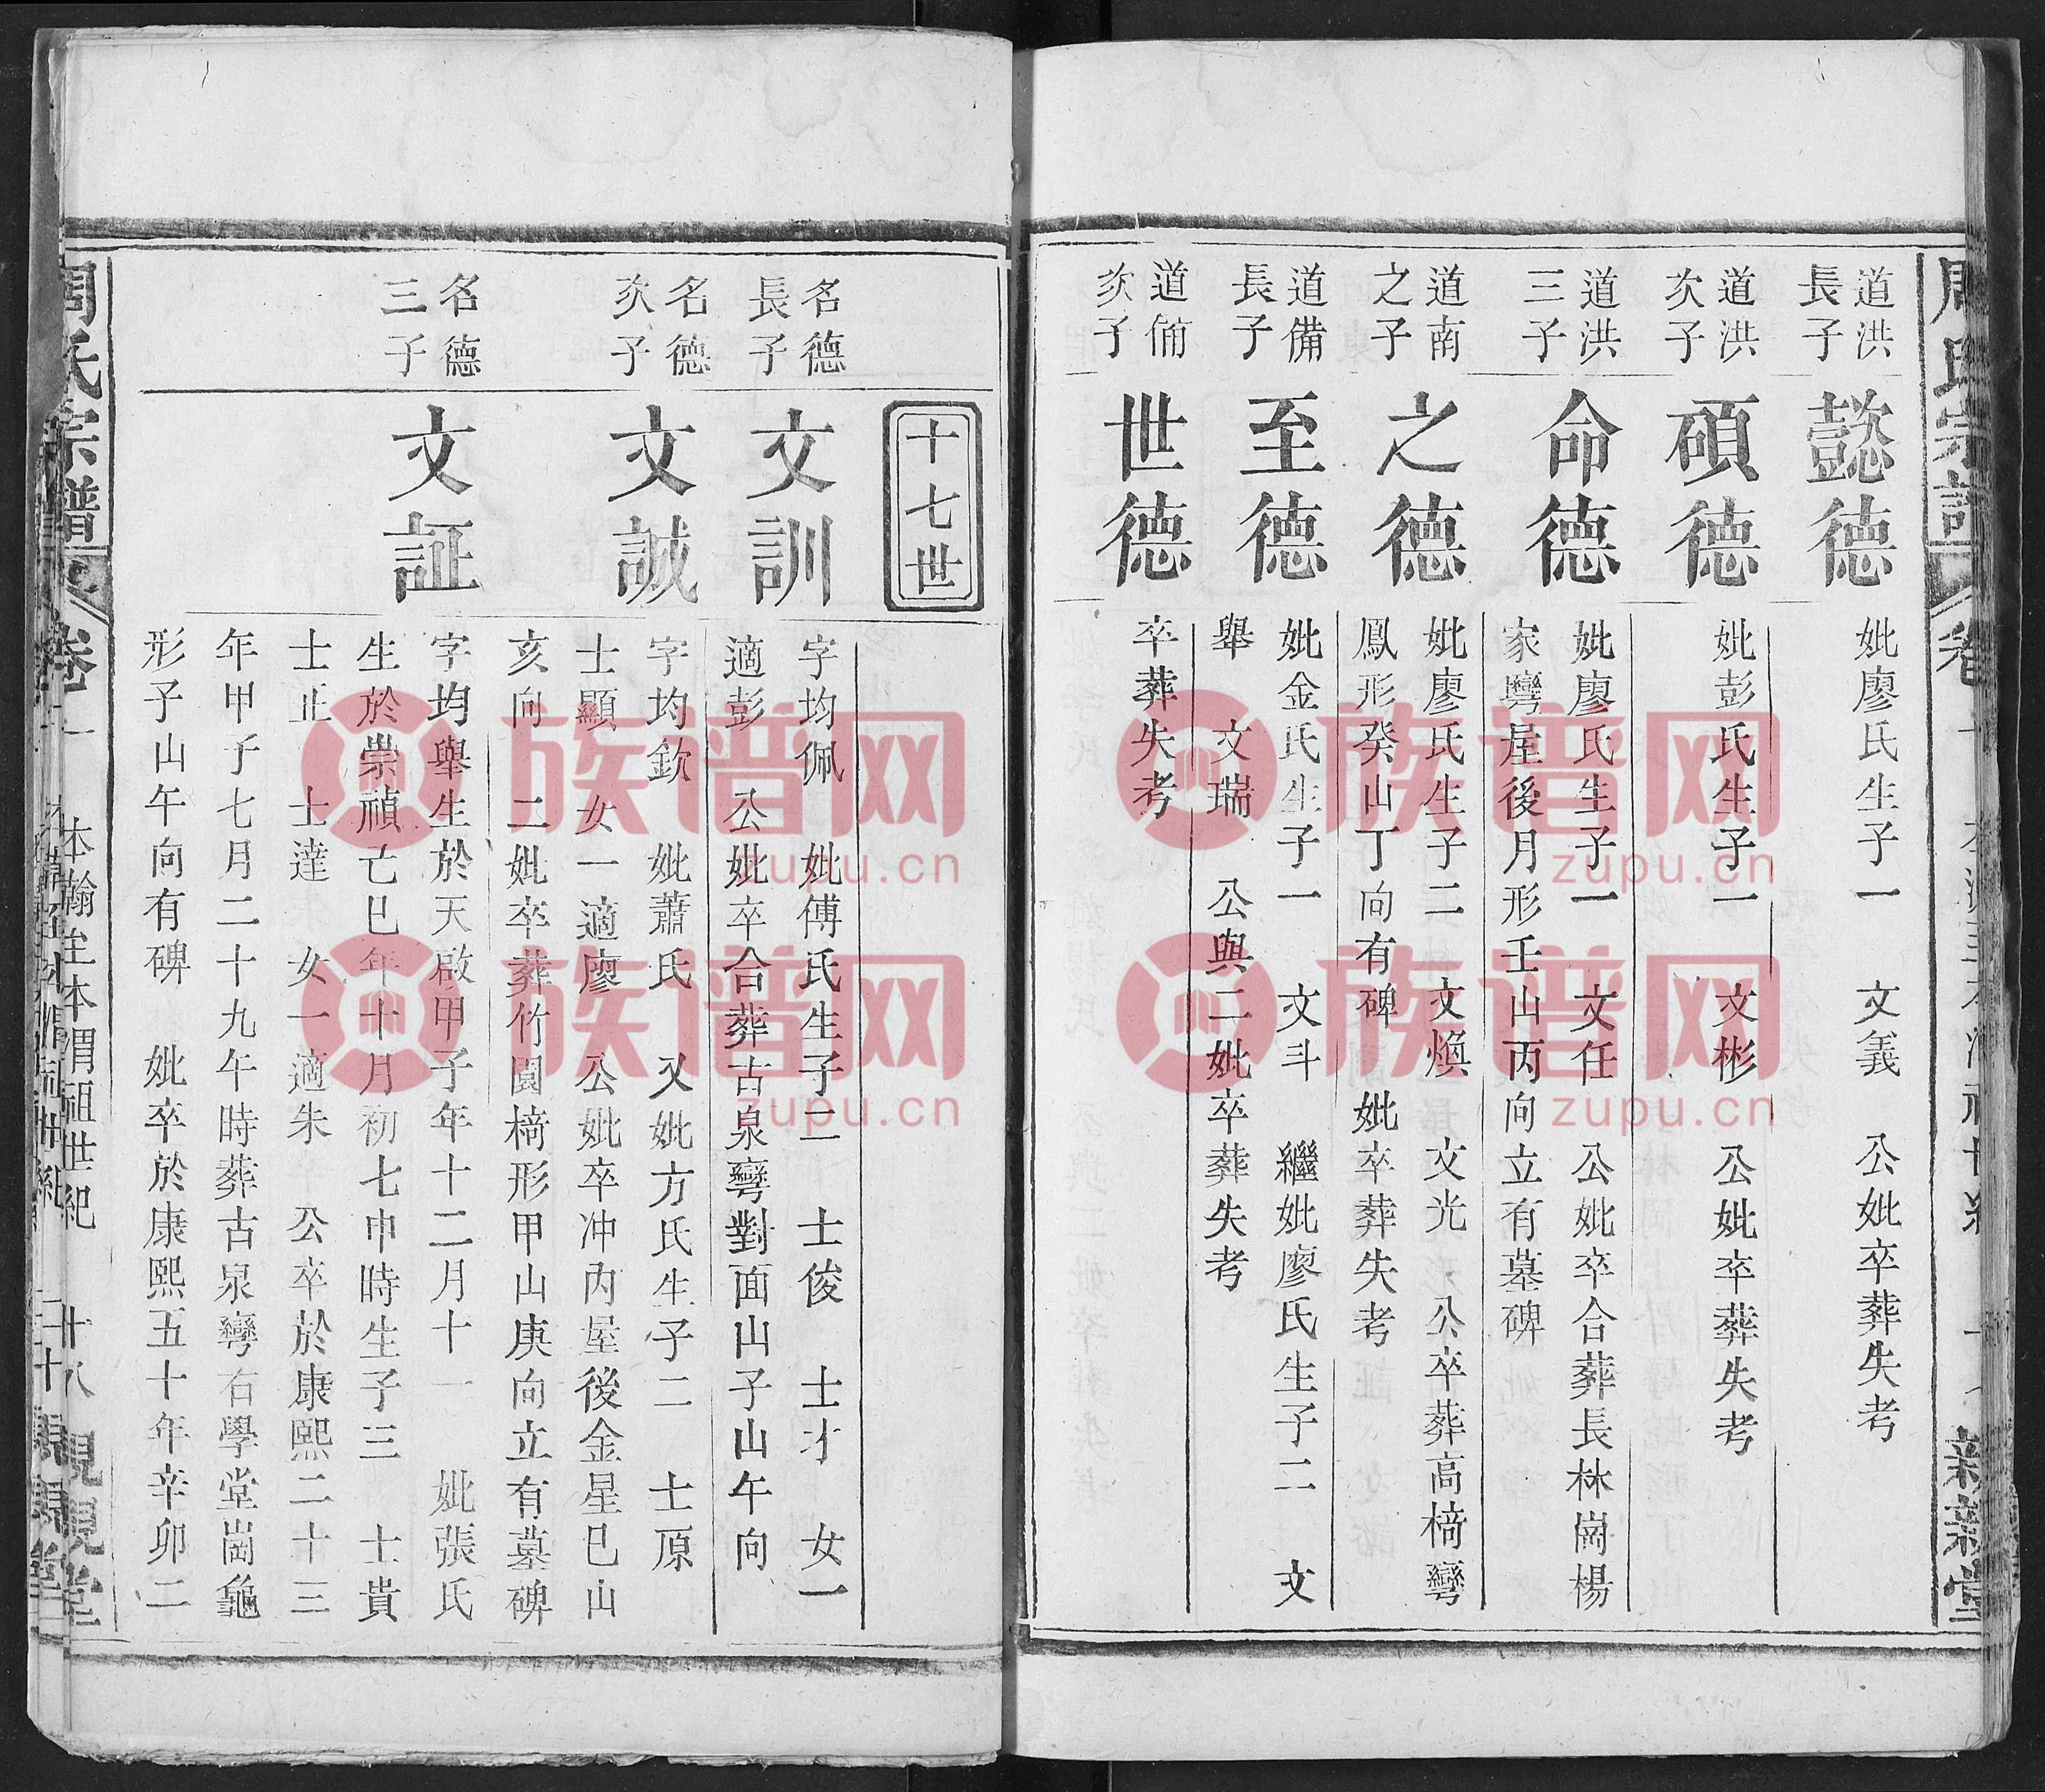 周氏宗譜
新新堂
道洪
長子
懿德
妣廖氏生子一　文義　公妣卒葬失考
道洪
次子
碩德
妣彭氏生子一　文彬　公妣卒葬失考
道洪
三子
命德
妣廖氏生子一　文任　公妣卒合葬長林崗楊
家彎屋後月形壬山丙向立有墓碑
道南
之子
之德
妣廖氏生子二　文煥　文光　公卒葬高樀彎
鳳形癸山丁向有碑　妣卒葬失考
道備
長子
至德
妣金氏生子一　文斗　繼妣廖氏生子二　文
舉　文瑞　公與二妣卒葬失考
道備
次子
世德
卒葬失考
十七世
名德
長子
文訓
字均佩　妣傅氏生子二　士俊　士才　女一
適彭　公妣卒合葬古泉彎對面山子山午向
名德
次子
文誠
字均欽　妣蕭氏　又妣方氏生子二　士原
士顯　女一適廖　公妣卒冲內屋後金星巳山
亥向　二妣卒葬竹園樀形甲山庚向立有墓碑
名德
三子
文証
字均舉生於天啟甲子年十二月十一　妣張氏
生於崇禎己巳年十月初七申時生子三　士貴
士正　士達　女一適朱　公卒於康熙二十三
年甲子七月二十九午時葬古泉彎右學堂崗龜
形子山午向有碑　妣卒於康熙五十年辛卯二
周氏宗譜
卷一
本瀚至本渭祖世紀
十八
親親堂
族谱网
zupu.cn
族谱网
zupu.cn
族谱网
zupu.cn
族谱网
zupu.cn